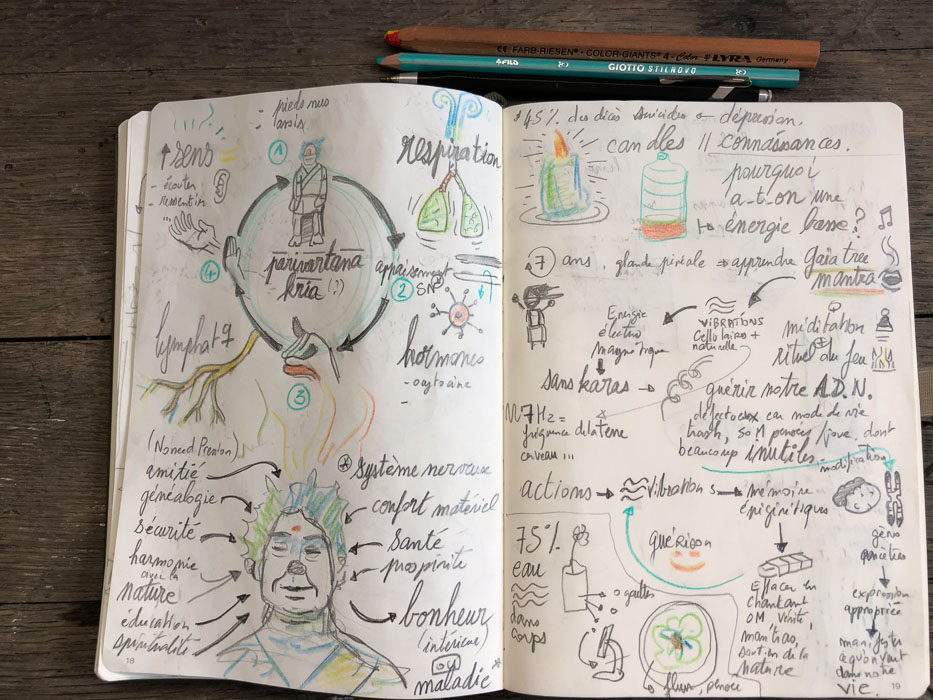 FARB-RIESEN · COLOR-GIANTS 4-Color LYRA Germany
FILA GIOTTO STILNOVO
pieds nus
assis
1
↑ sens
- écouter
- ressentir
...
4
respiration
parivartana
kria (?)
apaisement
2 SN
lymphat
hormones
- oxytocine
3
amitié
généalogie
sécurité
harmonie
avec la
nature
éducation
spiritualité
système nerveux
confort matériel
santé
prospérité
bonheur
(intérieur)
ou
maladie
18
45% des décès suicides
dépression.
candles 11 connaissances.
pourquoi
a-t-on une
énergie basse?
7 ans, glande pinéale ⇒ apprendre
gaia tree
mantra
Energie
électro
magnétique
VIBRATIONS
cellulaires +
naturelle
méditation
+
rituel du feu
sans karas →
guérir notre A.D.N.
7 Hz =
fréquence de la terre
cerveau ...
en mode de vie
trash, 50 M pensées / jour dont
beaucoup inutiles
modification
actions → vibrations → mémoire
épigénétiques
gènes
75%
eau
dans
corps
guérison
gouttes
Effacer en
chantant
OM vérité,
mantras,
soutien de la
nature
expression
appropriée
manifester
ce qu'on vit
dans notre
vie
19